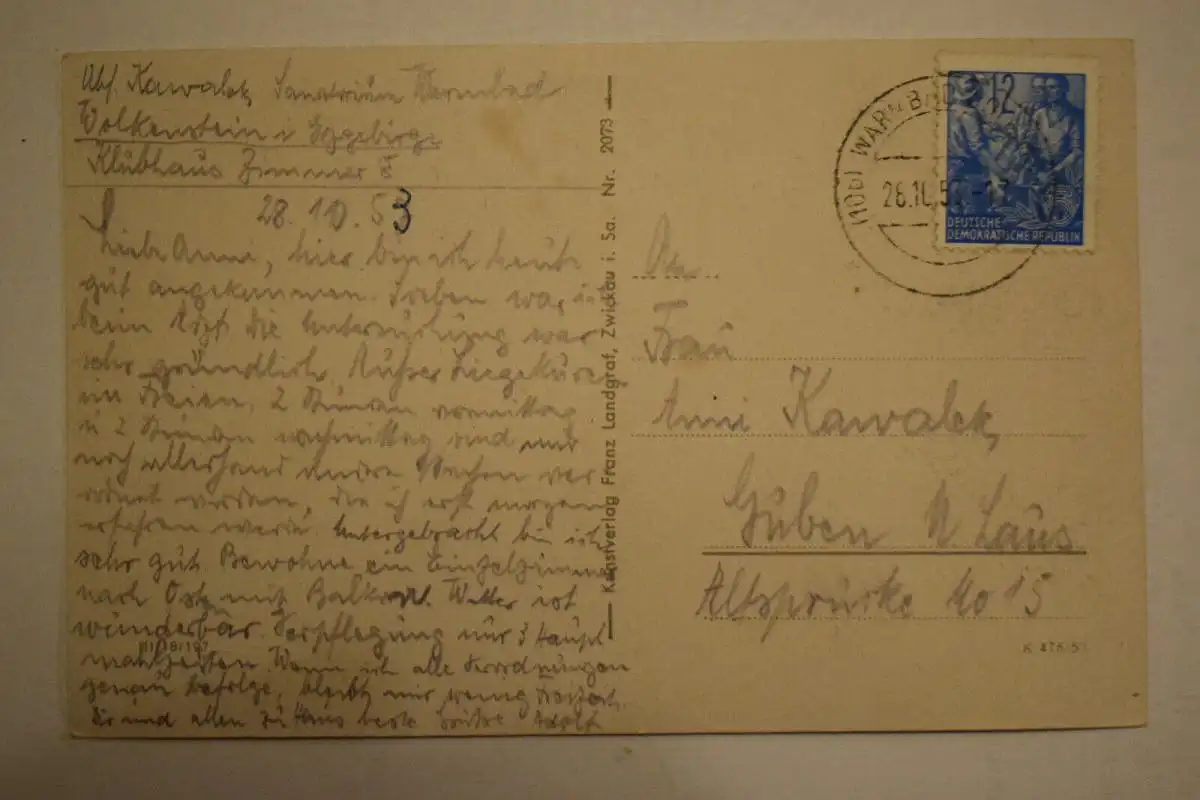 Abs. Kawalek, Sanatorium Warmbad
Wolkenstein i Erzgebirge
Klubhaus Zimmer 8
28.10.53
Liebe Anni, hier bin ich heute
gut angekommen. Soeben war ich
beim Arzt. Die Untersuchung war
sehr gründlich. Außer Liegekuren
im Freien, 2 Stunden vormittag
u 2 Stunden nachmittag sind mir
noch allerhand andere Sachen ver
ordnet worden, die ich erst morgen
erfahren werde. Untergebracht bin ich
sehr gut. Bewohne ein Einzelzimmer
nach Osten mit Balkon. Wetter ist
wunderbar. Verpflegung nur 3 Haupt
mahlzeiten. Wenn ich alle Verordnungen
genau befolge, bleibt mir wenig Freizeit.
Dir und allen zu Haus beste Grüße Adolf
III/18/197
Kunstverlag Franz Landgraf, Zwickau i. Sa. Nr. 2073
(10b) WARMBAD
28.10.53
12
DEUTSCHE
DEMOKRATISCHE REPUBLIK
An
Frau
Anni Kawalek,
Guben N. Laus.
Altsprucke No 15
K 476/53